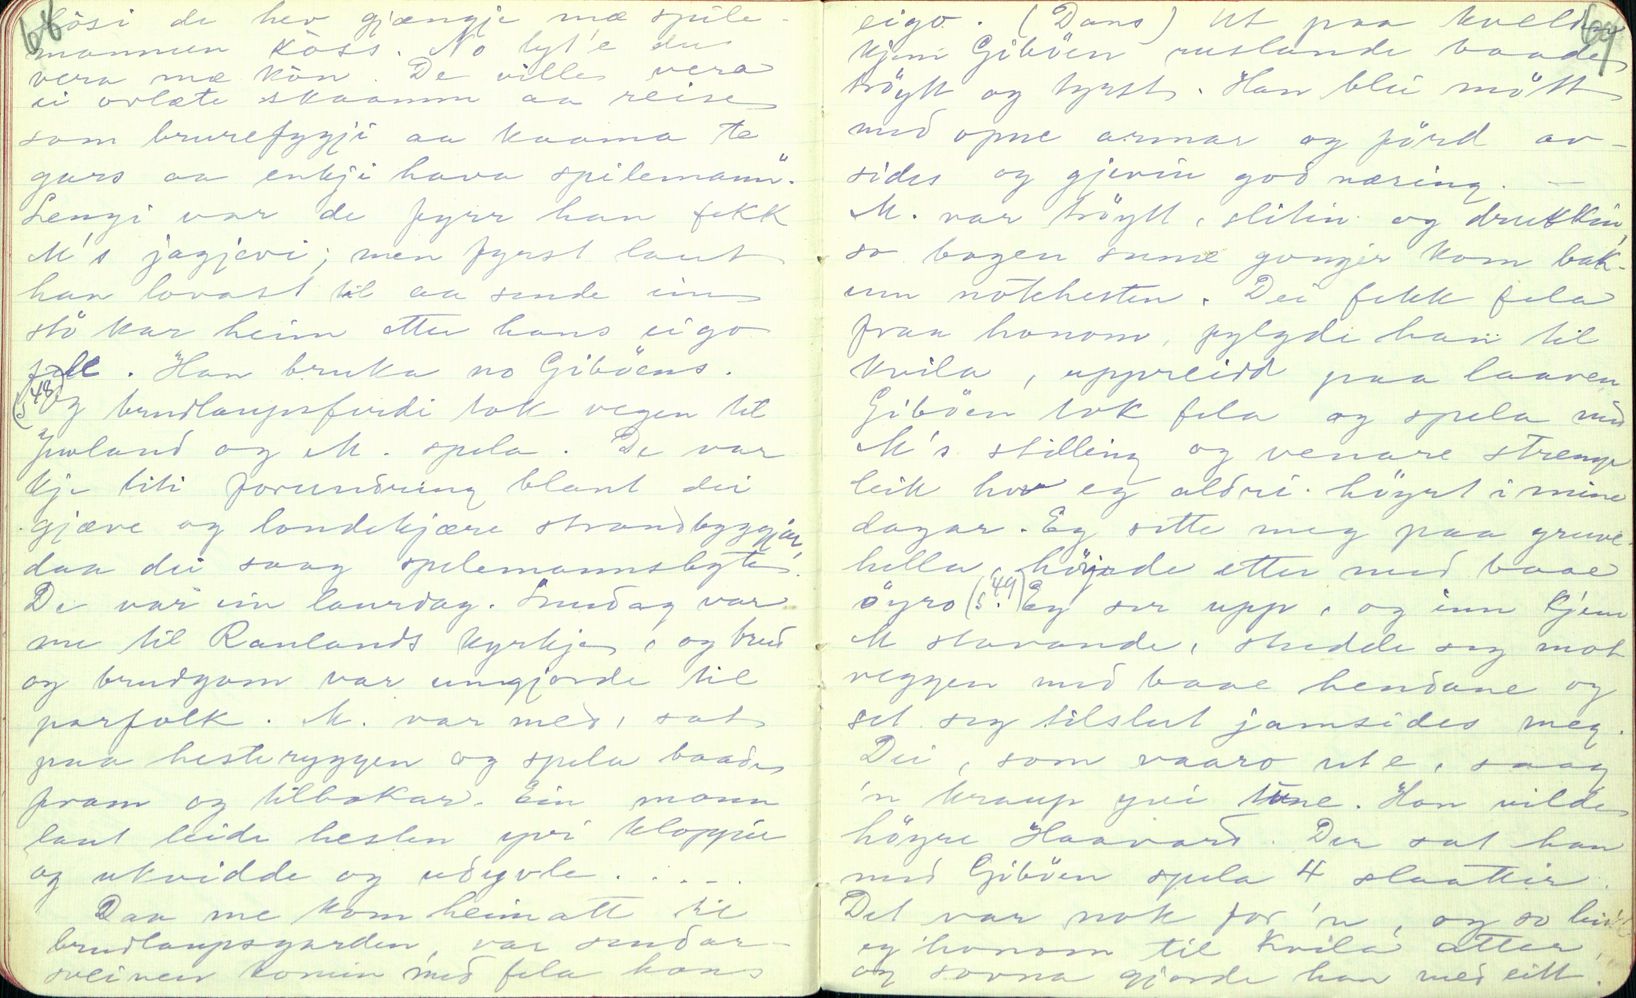 68
lösi de hev gjængje mæ spile-
mannen köss. No lyt'e du
vera mæ kön. De ville vera
ei ovlæte skaamm aa reise
som brurefygji aa kaama te
gars aa enkji hava spilemann".
Lengi var de fyrr han fekk
M's jagjevi; men fyrst laut
han lovast til aa sende ein
stö kar heim etter hans eigo
fele. Han bruka no Giböens.
(s 48) Og brudlaupsferdi tok vegen til
Juvland og M. spela. De var
kje liti forundring blant dei
gjæve og londekjære strandbyggjar,
daa dei saag spelemannsbyte.
De var ein laurdag. Sundag var
me til Raulands kyrkje, og brud
og brudgom var umgjorde til
parfolk. M. var med, sat
paa hesteryggen og spela baade
fram og tilbakar. Ein mann
laut leide hesten yvi kloppir
og ukvidde og udyvle.....
Daa me kom heimatt til
brudlaupsgarden, var sendar-
sveinen komin med fela hans
69
eigo. (Dans) Ut paa kvelden
kjem Giböen ruslande baade
tröytt og tyrst. Han blei mött
med opne armar og förd av-
sides og gjevin god næring. —
M. var tröytt, slitin og drukkin,
so bogen sume gongir kom bak-
um notehesten. Dei fekk fela
fraa honom, fylgdi han til
kvila, uppreidd paa laaven
Giböen tok fela og spela med
M's stilling og venare strenge
leik hev eg aldri höyrt i mine
dagar. Eg sette meg paa gruve-
hella, höyrde etter med baae
öyro (s. 49) Eg ser upp, og inn kjem
M stavande, studde seg mot
veggen med baae hendane og
set seg tilslut jamsides meg.
Dei, som vaaro ute, saag
'n kraup yvi tune. Han vilde
höyre Haavard. Der sat han
med Giböen spela 4 slaattir.
Det var nok for 'n, og so leidde
eg honom til kvila atter,
og sovna gjorde han med eitt.